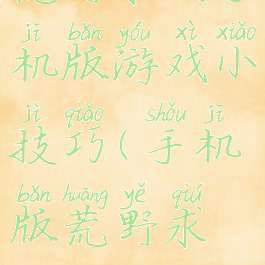 jī bǎn yóu xì xiǎo
机版游戏小
jì qiǎo shǒu jī
技巧(手机
bǎn huāng yě qiú
版荒野求